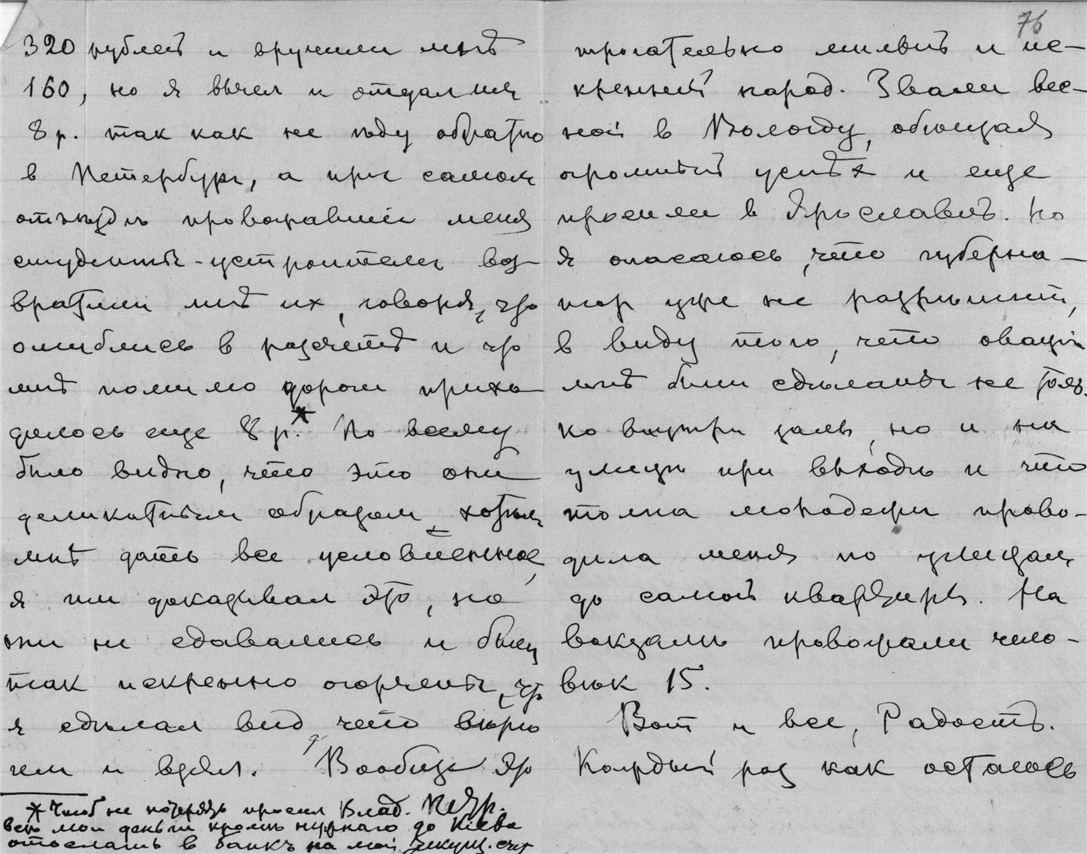 320 рублей и вручили мнѣ
160, но я вычел и отдал им
8 р. так как не пѣду обратно
в Петербург, а при самом
отъѣздѣ провожавшие меня
студенты-устроители воз-
вратили мнѣ их, говоря, что
ошиблись в разсчетѣ и что
мнѣ помимо дороги прихо-
дилось еще 8 р.* По всему
было видно, что это они
деликатным образом хотѣли
мнѣ дать все условленное,
я им доказывал это, но
они не сдавались и были
так искренно огорчены, что
я сдѣлал вид что вѣрю
им и взял. Вообще это
* Чтоб не потерять просил Влад. Петр.
всѣ мои деньги кромѣ нужнаго до Кіева
отослать в банкъ на мой текущ. счет
76
трогательно милый и ис-
кренний народ. Звали вес-
ной в Вологду, обѣщая
огромный успѣх и еще
просили в Ярославль. Но
я опасаюсь, что губерна-
тор уже не разрѣшит,
в виду того, что оваціи
мнѣ были сдѣланы не толь-
ко внутри залы, но и на
улицѣ при выходѣ и что
толпа молодежи прово-
дила меня по улицам
до самой квартиры. На
вокзалѣ провожали чело-
вѣк 15.
Вот и все, Радость.
Каждый раз как остаюсь